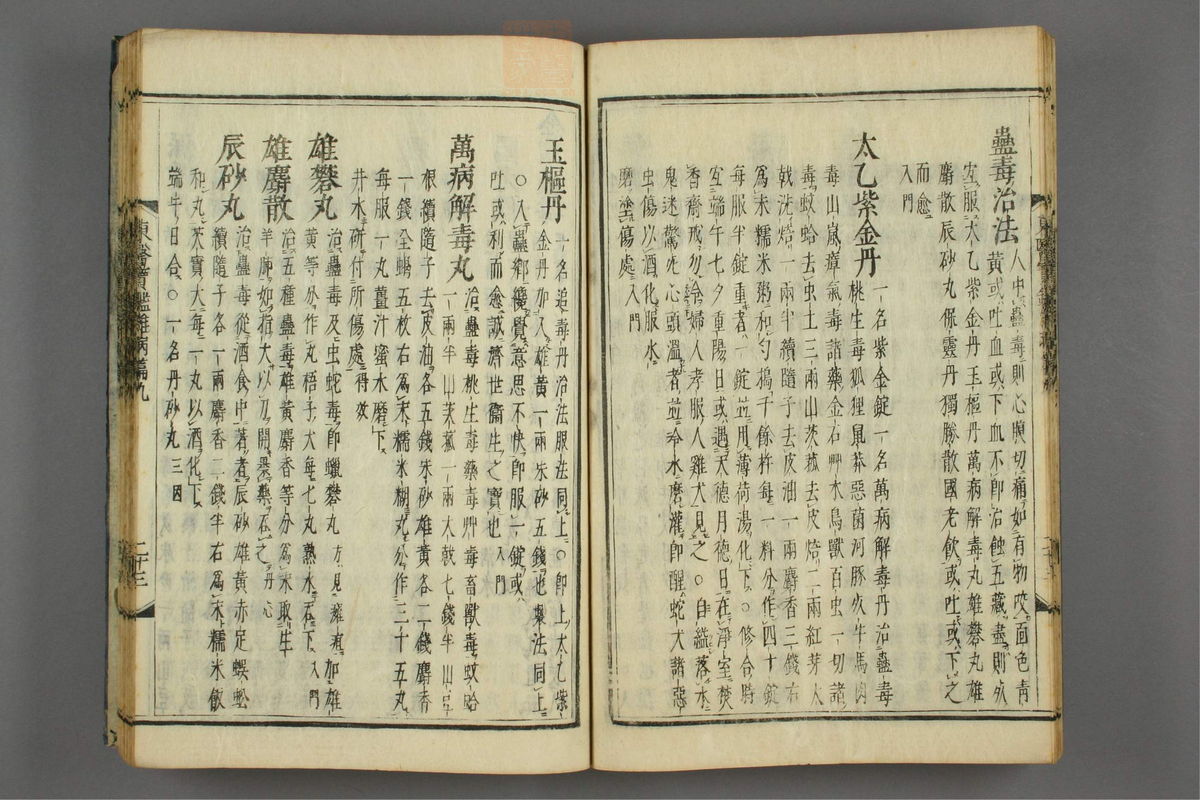 蠱毒治法人中蠱毒則心腹切痛如有物咬面色青
黃或吐血或下血不卽治蝕五藏盡則死
宜服太乙紫金丹玉樞丹萬病解毒丸雄礬丸雄
麝散辰砂丸保靈丹獨勝散國老飲或吐或下之
而愈
入門
太乙紫金丹一名紫金錠一名萬病解毒丹治蠱毒
桃生毒狐狸鼠莽惡菌河豚死牛馬肉
毒山嵐瘴氣毒諸藥金石艸木鳥獸百虫一切諸
毒蚊蛤去虫土三兩山茨菰去皮焙二兩紅芽大
戟洗焙一兩半續隨子去皮油一兩麝香三錢右
爲末糯米粥和勻搗千餘杵每一料分作四十錠
每服半錠重者一錠並用薄荷湯化下○修合時
宜端午七夕重陽日或遇天德月德日在淨室焚
香齋戒勿令婦人孝服人雞犬見之○自縊落水
鬼迷驚死心頭溫者並冷水磨灌卽醒蛇犬諸惡
虫傷以酒化服水
磨塗傷處入門
玉樞丹一名追毒丹治法服法同上○卽上太乙紫
金丹加入雄黃一兩朱砂五錢也製法同上
○入蠱鄕纔覺意思不快卽服一錠或
吐或利而愈誠濟世衞生之寶也入門
萬病解毒丸治蠱毒桃生毒藥毒艸毒畜獸毒蚊蛤
一兩半山茨菰一兩大戟七錢半山豆
根續隨子去皮油各五錢朱砂雄黃各二錢麝香
一錢全蝎五枚右爲末糯米糊丸分作三十五丸
每服一丸薑汁蜜水磨下
井水硏付所傷處得效
雄礬丸治蠱毒及虫蛇毒卽蠟礬丸方見癰疽加雄
黃等分作丸梧子大每七丸熟水呑下入門
雄麝散治五種蠱毒雄黃麝香等分爲末取生
羊肺如指大以刀開裹藥呑之丹心
辰砂丸治蠱毒從酒食中著者辰砂雄黃赤足蜈蚣
續隨子各一兩麝香二錢半右爲末糯米飮
和丸芡實大每一丸以酒化下
端午日合○一名丹砂丸三因
東醫寶鑑雜病篇九
二十三